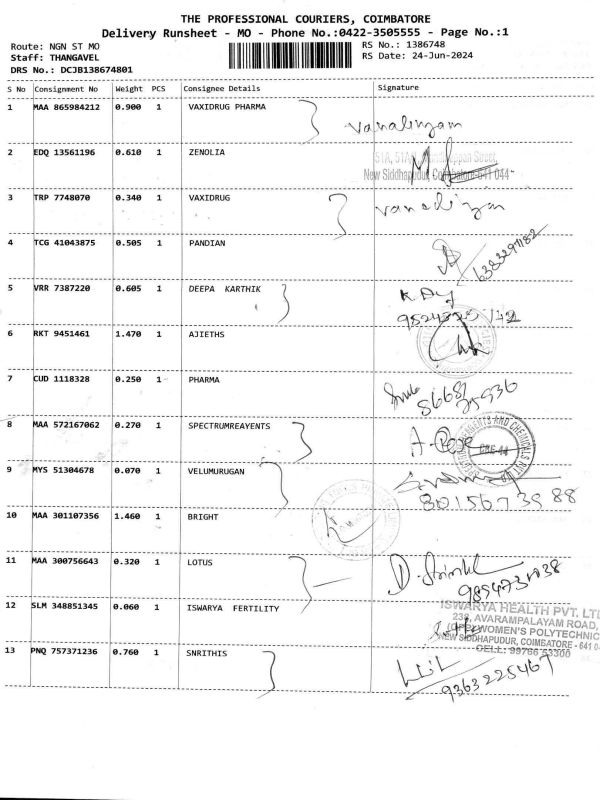 THE PROFESSIONAL COURIERS, COIMBATORE
Delivery Runsheet - MO - Phone No.:0422-3505555 - Page No.:1
Route: NGN ST MO
RS No.: 1386748
Staff: THANGAVEL
RS Date: 24-Jun-2024
DRS No.: DCJB138674801
S No Consignment No Weight PCS Consignee Details Signature
1 MAA 865984212 0.900 1 VAXIDRUG PHARMA
vanalingam
2 EDQ 13561196 0.610 1 ZENOLIA
New Siddhapudur, Coimbatore-641 044
3 TRP 7748070 0.340 1 VAXIDRUG
4 TCG 41043875 0.505 1 PANDIAN
6383291182
5 VRR 7387220 0.605 1 DEEPA KARTHIK
6 RKT 9451461 1.470 1 AJIETHS
7 CUD 1118328 0.250 1 PHARMA
8 MAA 572167062 0.270 1 SPECTRUMREAYENTS
9 MYS 51304678 0.070 1 VELUMURUGAN
8015673988
10 MAA 301107356 1.460 1 BRIGHT
11 MAA 300756643 0.320 1 LOTUS
12 SLM 348851345 0.060 1 ISWARYA FERTILITY
ISWARYA HEALTH PVT. LTD
238, AVARAMPALAYAM ROAD,
(OPP) WOMEN'S POLYTECHNIC
NEW SIDDHAPUDUR, COIMBATORE - 641 0
CELL: 99766 53300
13 PNQ 757371236 0.760 1 SNRITHIS
9363225467